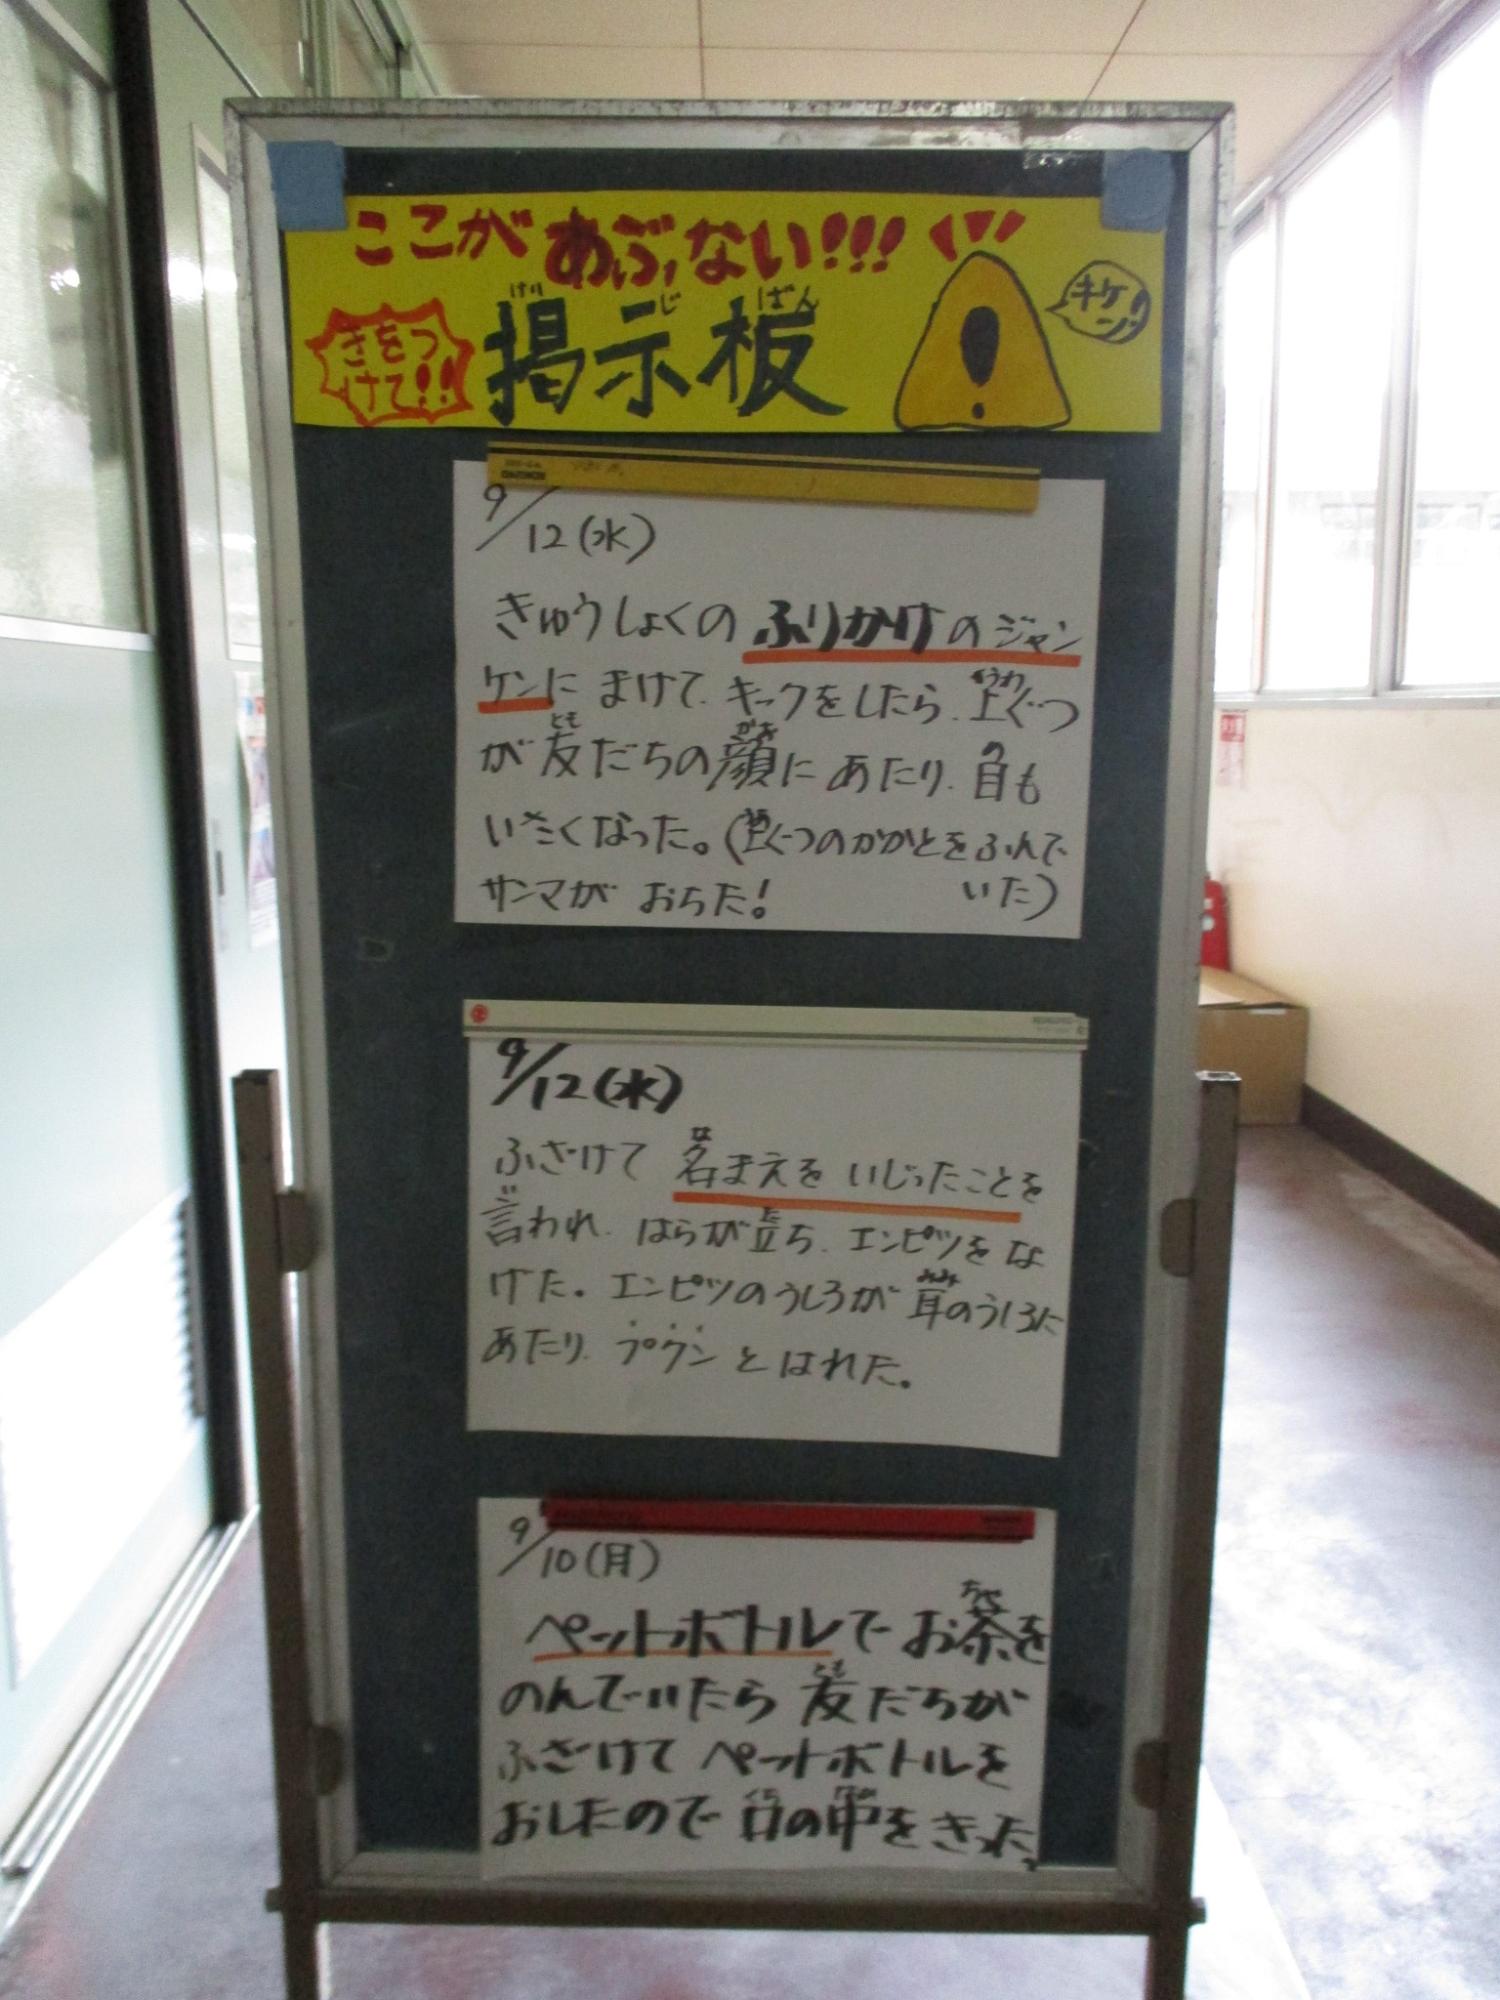 ここがあぶない!!!
きをつ
けて!!
けいじばん
掲示板
キケ
ン!!
9/12(水)
きゅうしょくのふりかけのジャン
ケンにまけて、キックをしたら、上ぐつ
が友だちの顔にあたり、目も
いたくなった。(上ぐつのかかとをふんで
いた)
サンマがおちた!
9/12(水)
ふざけて 名まえを いじったことを
言われ、はらが立ち、エンピツをな
げた。エンピツのうしろが耳のうしろに
あたり、プクンとはれた。
9/10(月)
ペットボトルでお茶を
のんでいたら 友だちが
ふざけて ペットボトルを
おしたので 口の中をきった。